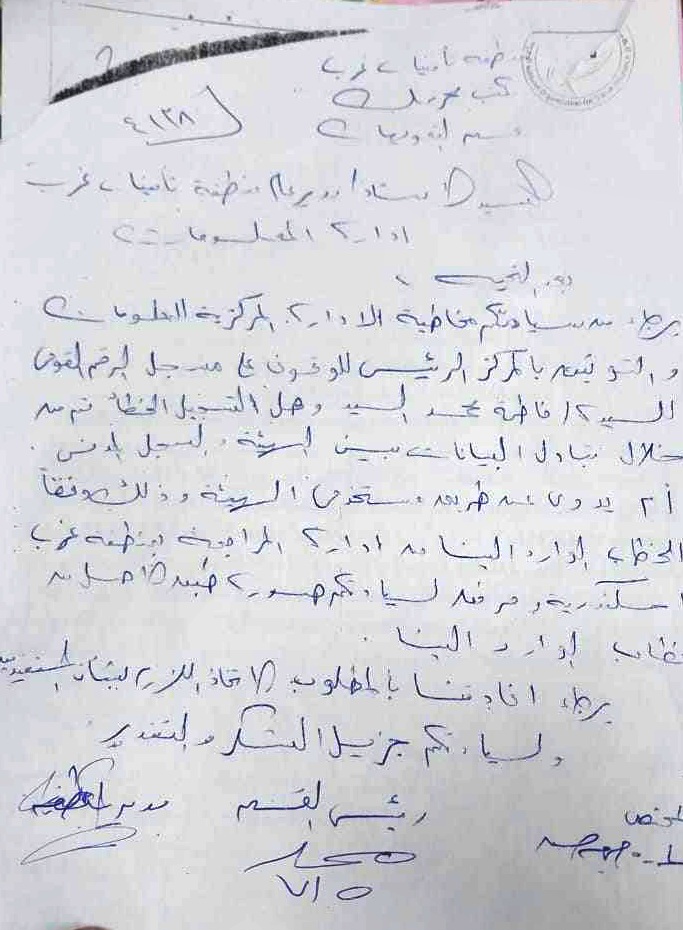 منطقة تأمينات غرب
مكتب محرم بك
قسم التعويضات
٤١٣٨
السيد الاستاذ / مدير عام منطقة تأمينات غرب
ادارة المعلومات
بعد التحية ،
برجاء من سيادتكم مخاطبة الادارة المركزية للمعلومات
و التوثيق بالمركز الرئيسى للوقوف على مسجل الرقم القومى
السيدة / فاطمة محمد السيد وهل التسجيل الخطأ تم من
خلال تبادل البيانات بين الهيئة و السجل المدنى
أم يدوى عن طريق مستخدمى الهيئة وذلك وفقاً
لخطاب الوارد الينا من ادارة المراجعة بمنطقة غرب
اسكندرية ومرفق لسيادتكم صورة طبق الاصل من
خطاب الوارد الينا .
برجاء افادتنا بالمطلوب لاتخاذ اللازم لشأن
ولسيادتكم جزيل الشكر والتقدير
المختص رئيس القسم مدير
محمد
٧/٥